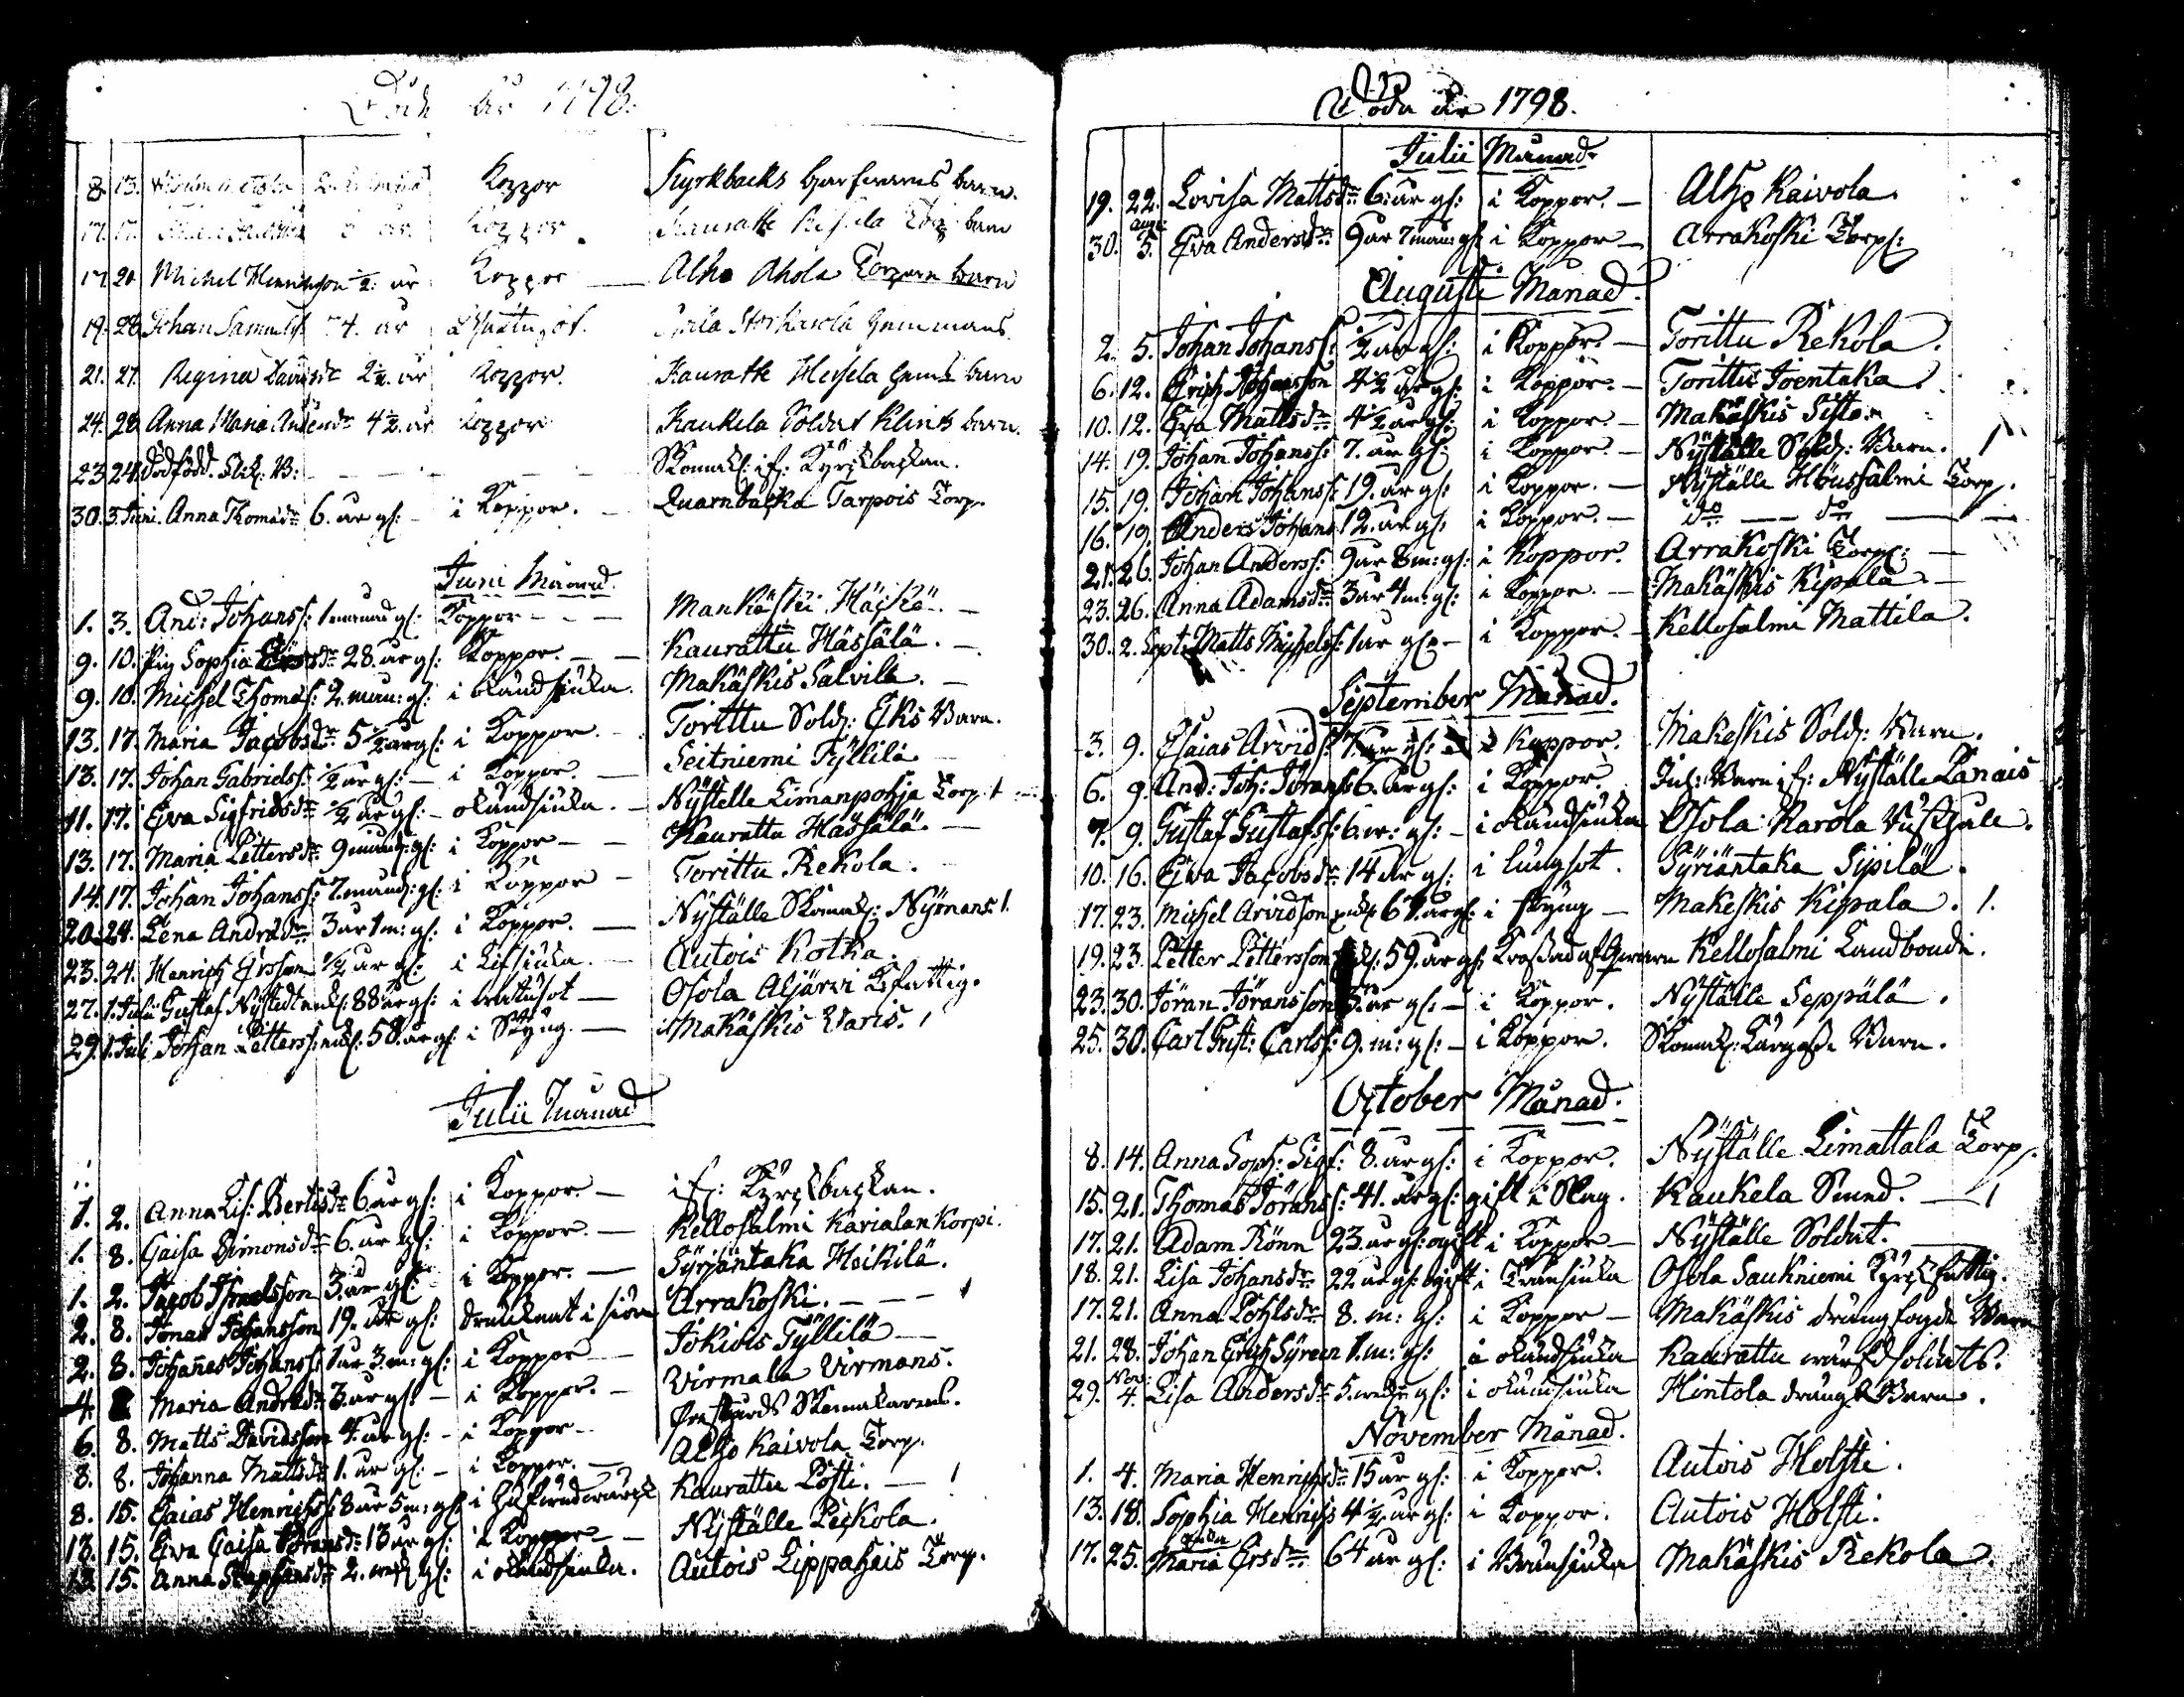 Döde År 1798.
8. 13. Koppor Kyrkbacks barn.
17. 17. Koppor Kauratte barn
17. 20. Michel Henrichson ½ år Koppor Alho Ahola Torpare barn
19. 28. Johan Samuels: 74. år
21. 27. Regina Davidsdr 2½. år Koppor. Kauratte Heysela barn
24. 28. Anna Maria 4½. år Koppor Kaukela Soldat Klinks barn.
23. 24. dödfödd. B: Skomak: if: Kyrckbackan.
30. 3. Juni. Anna Thomasdr 6. år gl: i Koppor. Quarnbacka Tarpois Torp.
Juni Månad.
1. 3. And: Johanss: 1 månad gl: Koppor Mankäski Häckä.
9. 10. Pig Sophia 28. år gl: Koppor. Kaurattu Hässälä.
9. 10. Michel Thomass: 2. mån: gl: i okänd siuka. Makäskis Salvila.
13. 17. Maria Jacobsdr 5½ år gl: i Koppor. Torittu Sold: Eks Barn.
13. 17. Johan Gabrielss: ½ år gl: i Koppor. Seitniemi Tyllilä
11. 17. Eva Sigfridsdr ½ år gl: okänd siuka. Nystelle Limanpohja Torp.
13. 17. Maria Pettersdr 9 månad: gl: i Koppor Kaurattu Hässälä.
14. 17. Johan Johanss: 7. månad: gl: i Koppor Torittu Rekola.
20. 24. Lena Andersdr 3 år 1 m: gl: i Koppor. Nyställe Skomak: Nymans 1.
23. 24. Henrich Ersson ½ år gl: i Lifsiuka. Autois Kotka.
27. 1. Julii Gustaf Nystedt enkl: 88 år gl: i watusot Osola Aljärvi Kfattig.
29. 1. Juli Johan Petterss: enkl: 58. år gl: i Styng. Makäskis Waris. 1
Julii Månad
1. 2. Anna Lis: Bertilsdr 6. år gl: i Koppor. if: Kyrckbackan.
1. 8. Caisa Simonsdr 6. år gl: i Koppor. Kellosalmi Karialan Korpi.
1. 2. Jacob Ismelsson 3. år gl: i Koppor. Syrjäntaka Heikilä.
2. 8. Jonas Johansson 19. år gl: Drunknat i siön Arrakoski. 1
2. 8. Johannes Johanss: 1 år 3. m: gl: i Koppor Jokiois Tyllilä
4. 8. Maria Andersdr 3. år gl: i Koppor. Virmala Virmans.
6. 8. Matts Davidsson 4. år gl: i Koppor Skomakarens.
8. 8. Johanna Mattsdr 1. år gl: i Koppor. Alho Kaivola Torp.
8. 15. Esaias Henrichs: 8 år 5 m: gl: i hufwudwärck Kaurattu Posti. 1
13. 15. Eva Caisa Joransdr 13 år gl: i Koppor Nyställe Peckola.
13. 15. Anna Staphansdr 2. gl: i okänd siuka. Autois Lippahais Torp.
Döda År 1798.
Julii Månad
19. 22. Lovisa Mattsdr 6: år gl: i Koppor. Alho Kaivola.
30. Aug: 5. Eva Andersdr 9 år 7 mån: gl: i Koppor Arrakoski Torp:
Augusti Månad.
2. 5. Johan Johanss: ½ år gl: i Koppor. Torittu Rekola.
6. 12. Erich Johansson 4½ år gl: i Koppor. Torittu Joentaka.
10. 12. Eva Mattsdr 4½ år gl: i Koppor. Makäskis Sifto
14. 19. Johan Johanss: 7. år gl: i Koppor. Nyställe Sold: Barn. 1
15. 19. Johan Johanss: 19. år gl: i Koppor. Nyställe Höussalmi Torp.
16. 19. Anders Johans 12. år gl: i Koppor. do do
21. 26. Johan Anderss: 9 år 8 m: gl: i Koppor. Arrakoski Torp:
23. 26. Anna Adamsdr 3 år 4 m: gl: i Koppor. Makäskis Kipala.
30. 2. Sept: Matts Michelss: 1 år gl: i Koppor. Kellosalmi Mattila.
September Månad.
3. 9. Esaias Arvids: 7. år gl: i Koppor. Makeskis Sold: Barn.
6. 9. And: Joh: Jörans 6. år gl: i Koppor. Inh: Barn if: Nyställe Lanais
7. 9. Gustaf Gustafss: 6. w: gl: i okänd siuka Osola Karola Buskjale.
10. 16. Eva Jacobsdr 14 år gl: i lungsot. Syriäntaka Sipilä.
17. 23. Michel Arvidson enkl 67. år gl: i styng Makeskis Kipala. 1.
19. 23. Petter Pettersson 59. år gl: Kellosalmi Landbonde.
23. 30. Jöran Joransson 3. år gl: i Koppor. Nyställe Seppälä.
25. 30. Carl Gust: Carlss: 9. m: gl: i Koppor. Skomak: Barn.
October Månad.
8. 14. Anna Soph: Sigf: 8. år gl: i Koppor. Nyställe Limattala Torp.
15. 21. Thomas Jöranss: 41. år gl: gift i Slag. Kaukela Smed. 1
17. 21. Adam Rönn 23. år gl: ogift i Koppor Nyställe Soldat.
18. 21. Lisa Johansdr 22 år gl: ogift i Tränsiuka Osola Saukniemi Kyrckfattig.
17. 21. Anna Pohlsdr 8. m: gl: i Koppor Makäskis drängfogde Barn
21. 28. Johan Erich Syreen 1. m: gl: i okänd siuka Kaurattu wärfd soldats.
29. Nov: 4. Lisa Andersdr 5. gl: i okänd siuka Hintola dräng Barn.
November Månad.
1. 4. Maria Henrichsdr 15 år gl: i Koppor. Autois Holsti.
13. 18. Sophia Henrichs 4½ år gl: i Koppor. Autois Holsti.
17. 25. Enka Maria Ersdr 64 år gl: i Brunsiuka Makäskis Rekola.